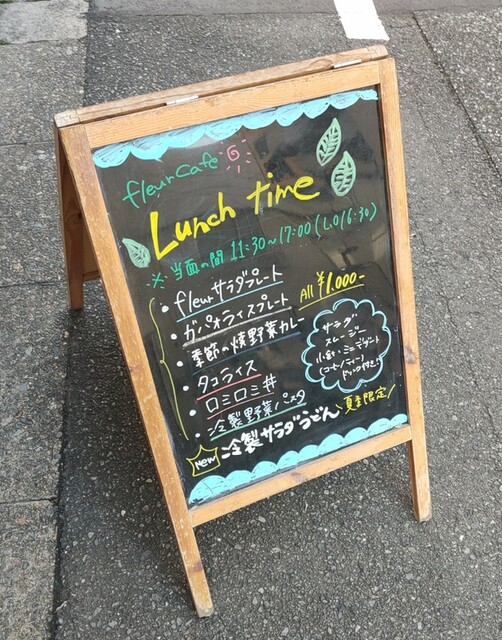 fleur Cafe
Lunch time
※当面の間 11:30~17:00 (L.O16:30)
・fleurサラダプレート
・ガパオライスプレート
・季節の焼野菜カレー
・タコライス
・ロミロミ丼
・冷製野菜パスタ
New 冷製サラダうどん 夏季限定!
All ¥1.000-
サラダ
スムージー
小鉢・ミニデザート
(コーヒー/ティー)
ドリンク付き